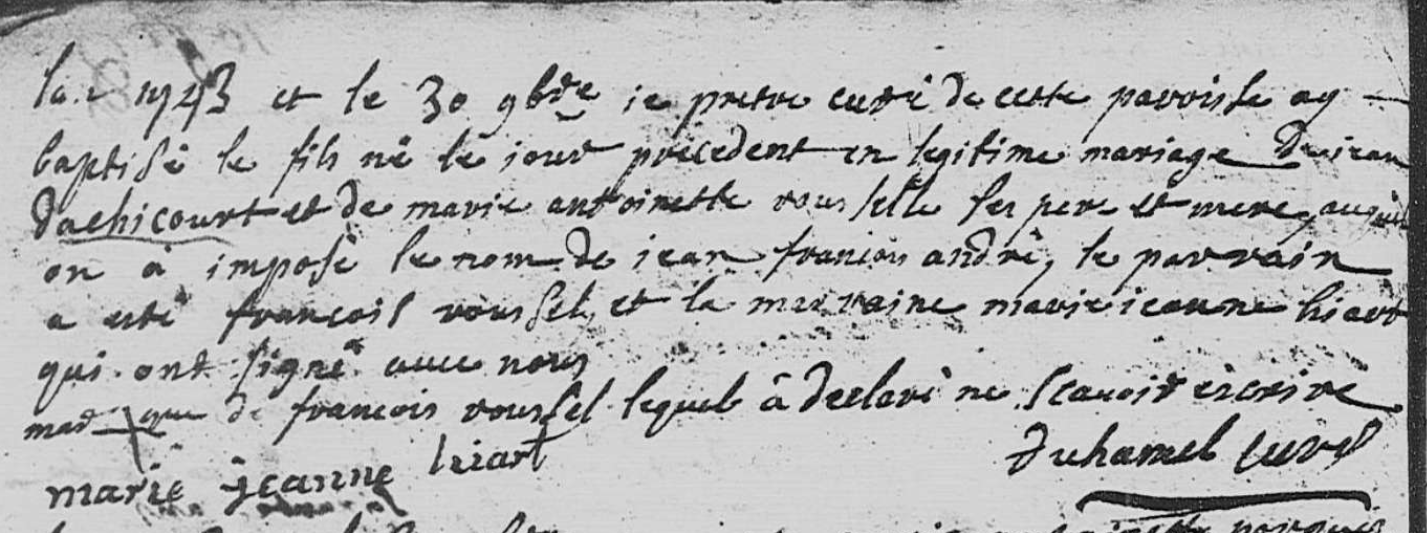 lan 1743 et le 30 9bre je pretre curé de cette paroisse ay
baptisé le fils né le jour précedent en legitime mariage de jean
dachicourt et de marie antoinette rousselle ses pere et mere, auquel
on a imposé le nom de jean francois andré, le parrain
a esté françois roussel, et la marraine marie jeanne hiart
qui ont signé avec nous
mar que de francois roussel lequel à declaré ne scavoir ecrire
marie jeanne hiart
duhamel curé